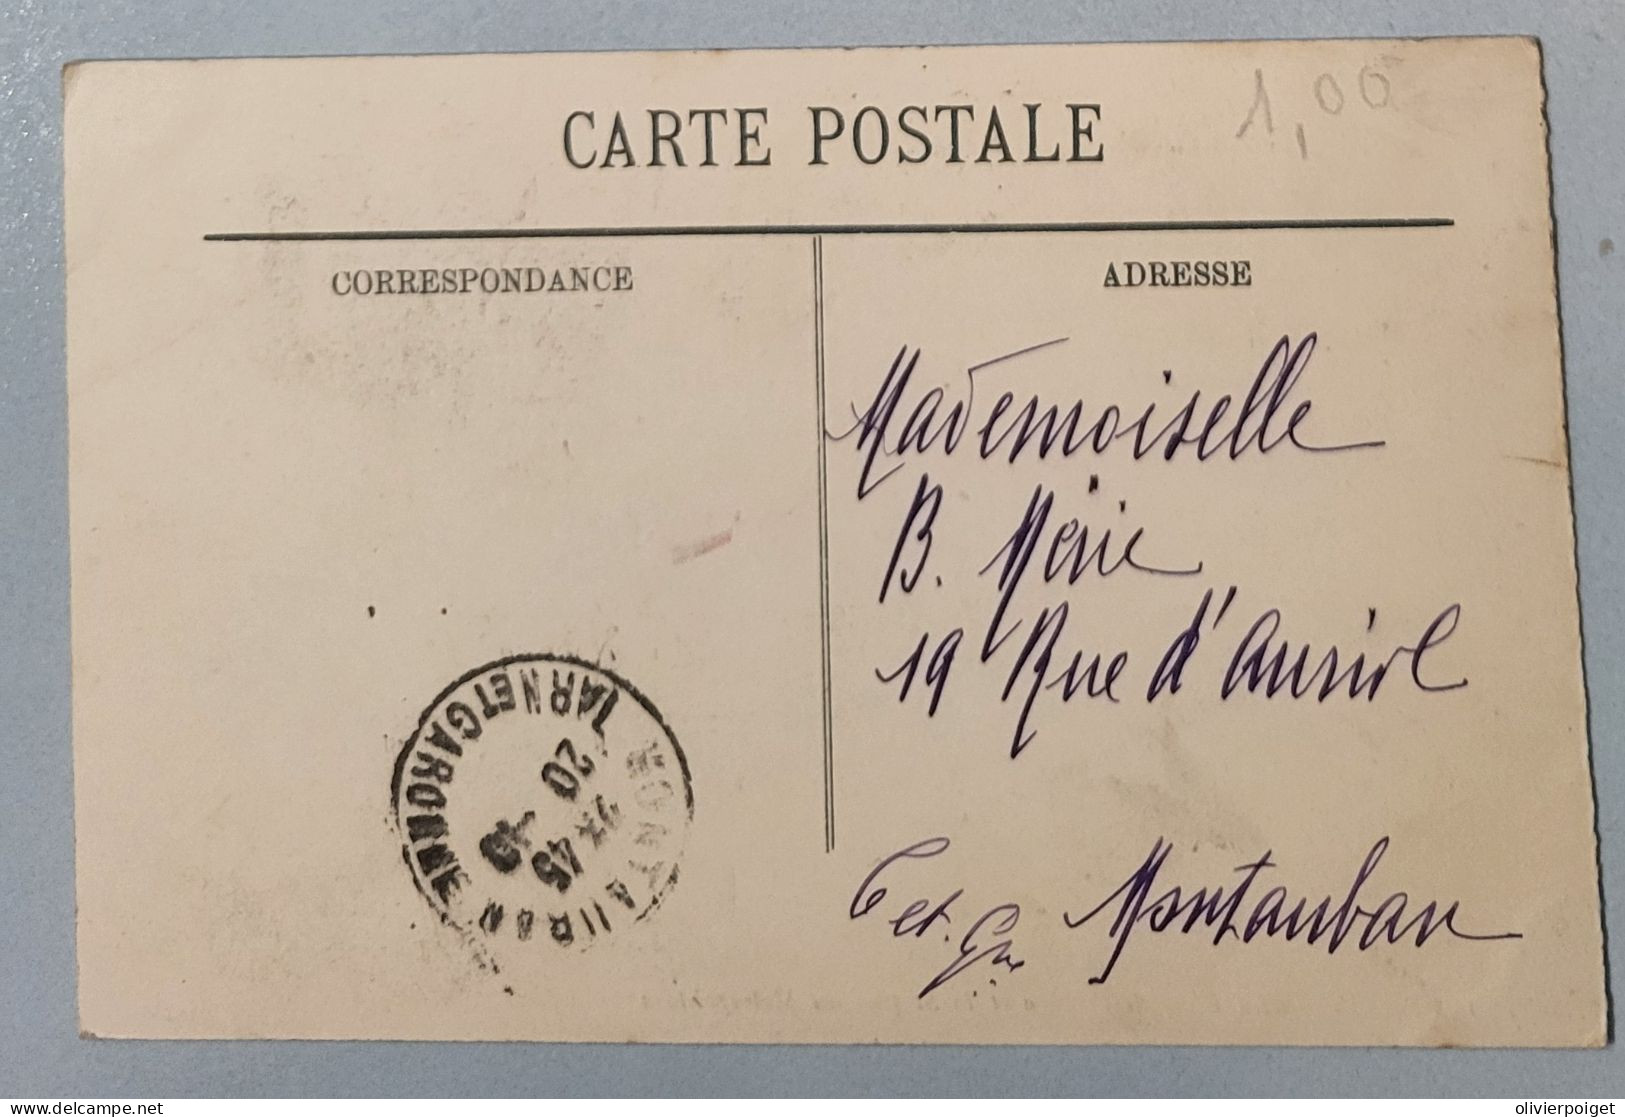 1,00
CARTE POSTALE
CORRESPONDANCE
ADRESSE
Mademoiselle
B. Mérie
19 Rue d'Auriol
Montauban
T et. Gne
MONTAUBAN
TARN ET GARONNE
20
45
delcampe.net
olivierpoiget